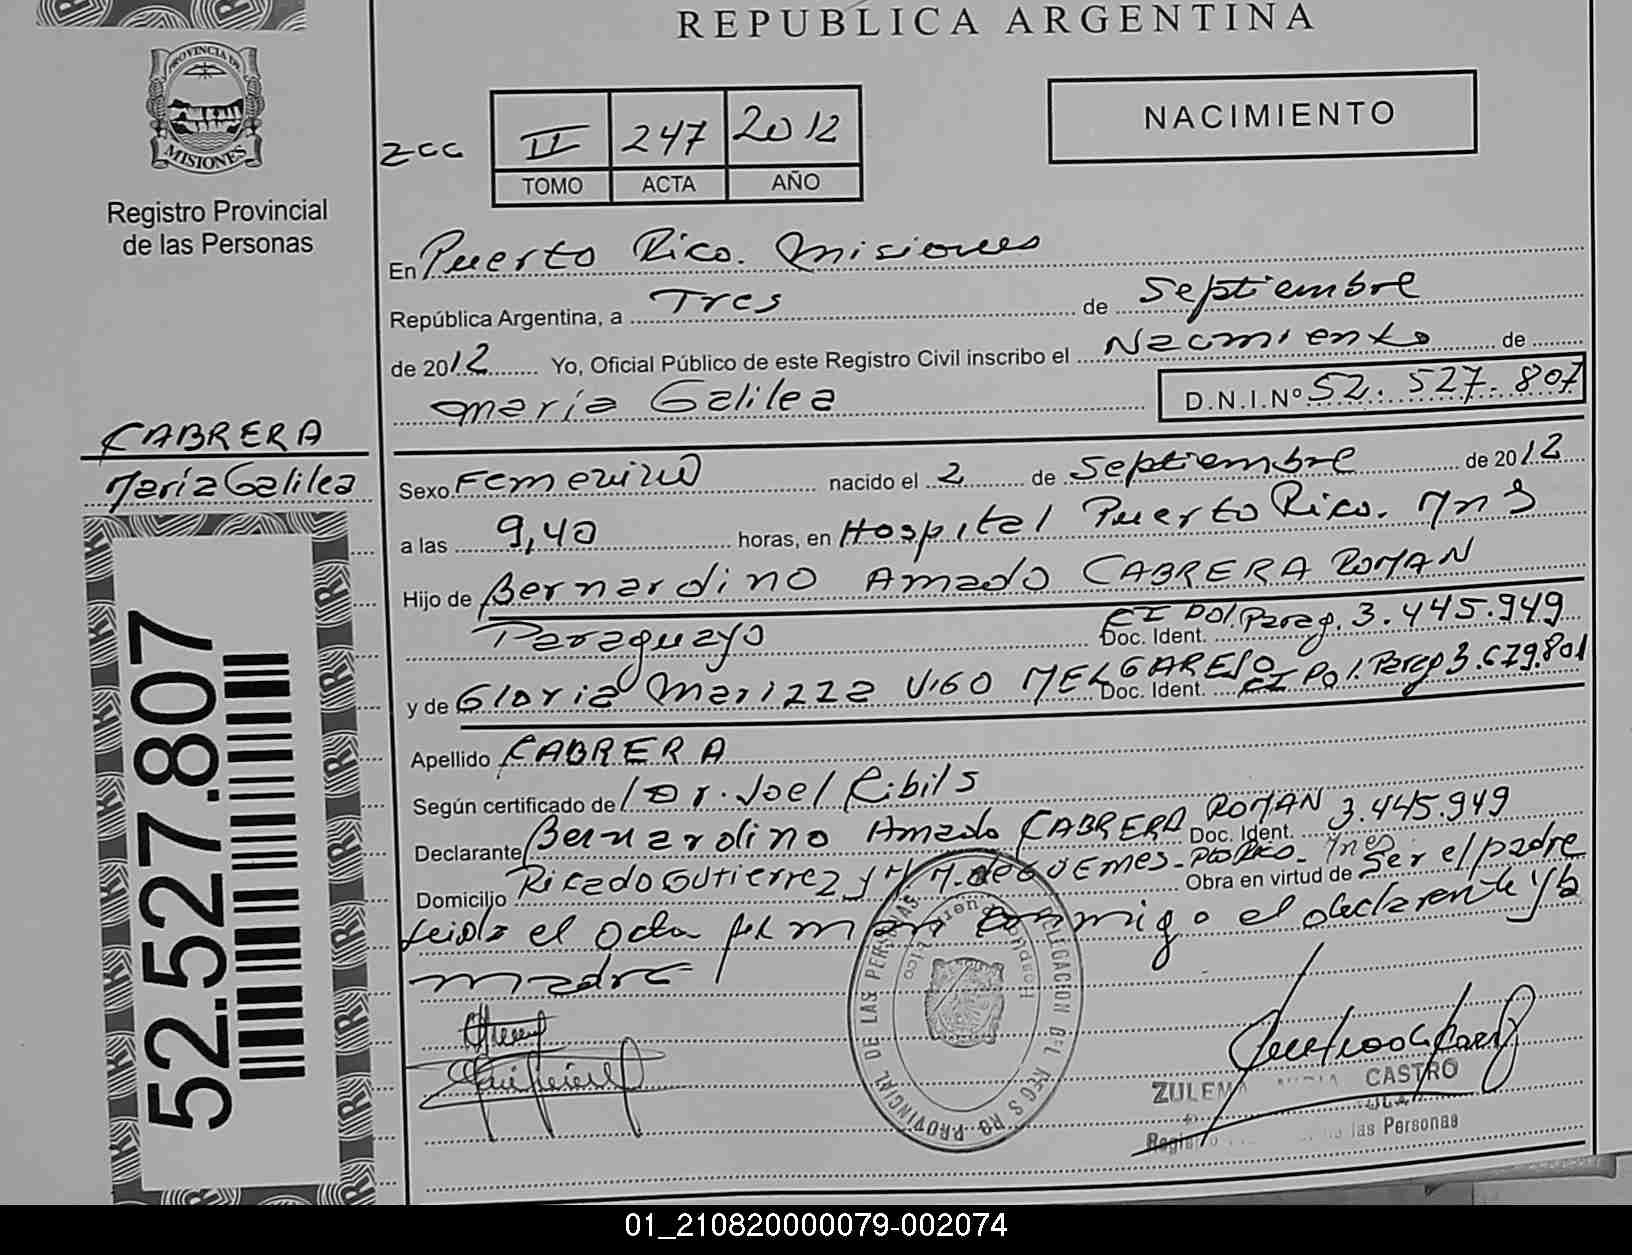 REPUBLICA ARGENTINA
PROVINCIA DE
MISIONES
Registro Provincial
de las Personas
zcc
II 247 2012
TOMO ACTA AÑO
NACIMIENTO
En Puerto Rico. Misiones
República Argentina, a Tres de Septiembre
de 2012 Yo, Oficial Público de este Registro Civil inscribo el Nacimiento de
Maria Galilea D.N.I.Nº 52.527.807
CABRERA
María Galilea
Sexo Femenino nacido el 2 de Septiembre de 2012
a las 9,40 horas, en Hospital Puerto Rico. Mns
Hijo de Bernardino Amado CABRERA ROMAN
Paraguayo Doc. Ident. CI Pol. Parag. 3.445.949
y de Gloria Marizza VIGO MELGAREJO Doc. Ident. CI Pol. Parag 3.679.801
Apellido CABRERA
Según certificado de Dr. Joel Ribils
Declarante Bernardino Amado CABRERA ROMAN Doc. Ident. 3.445.949
Domicilio Ricardo GUTIERREZ y M. M. de GÜEMES - Pto Rico - Mnes Obra en virtud de Ser el padre
leida el Acta firman conmigo el declarente y la
madre
52.527.807
DELEGACION DEL REGISTRO PROVINCIAL DE LAS PERSONAS
Hospital
ZULEMA CASTRO
Registro las Personas
01_210820000079-002074